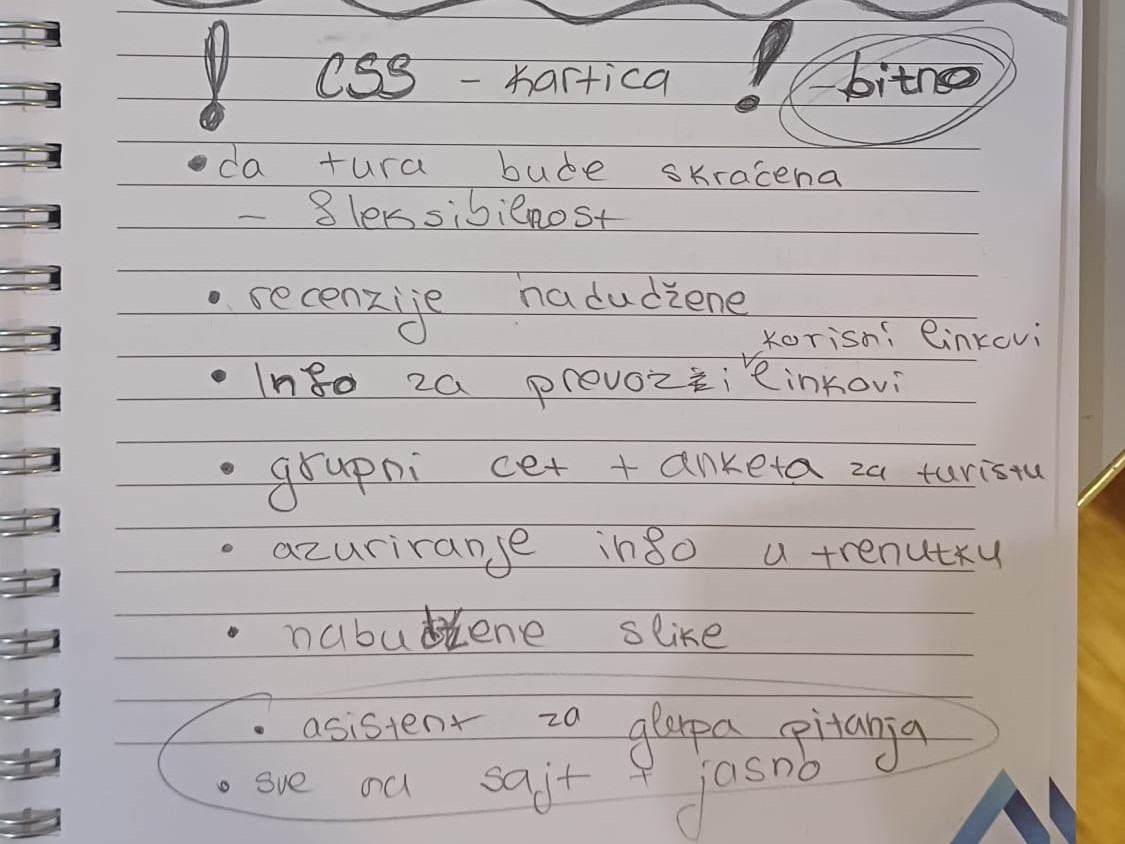 ! CSS - kartica ! - bitno
• da tura bude skraćena
- fleksibilnost
• recenzije nadudžene
korisni linkovi
• Info za prevoz i linkovi
• grupni cet + anketa za turistu
• azuriranje info u trenutku
• nabudžene slike
• asistent za glupa pitanja
• sve na sajt + jasno